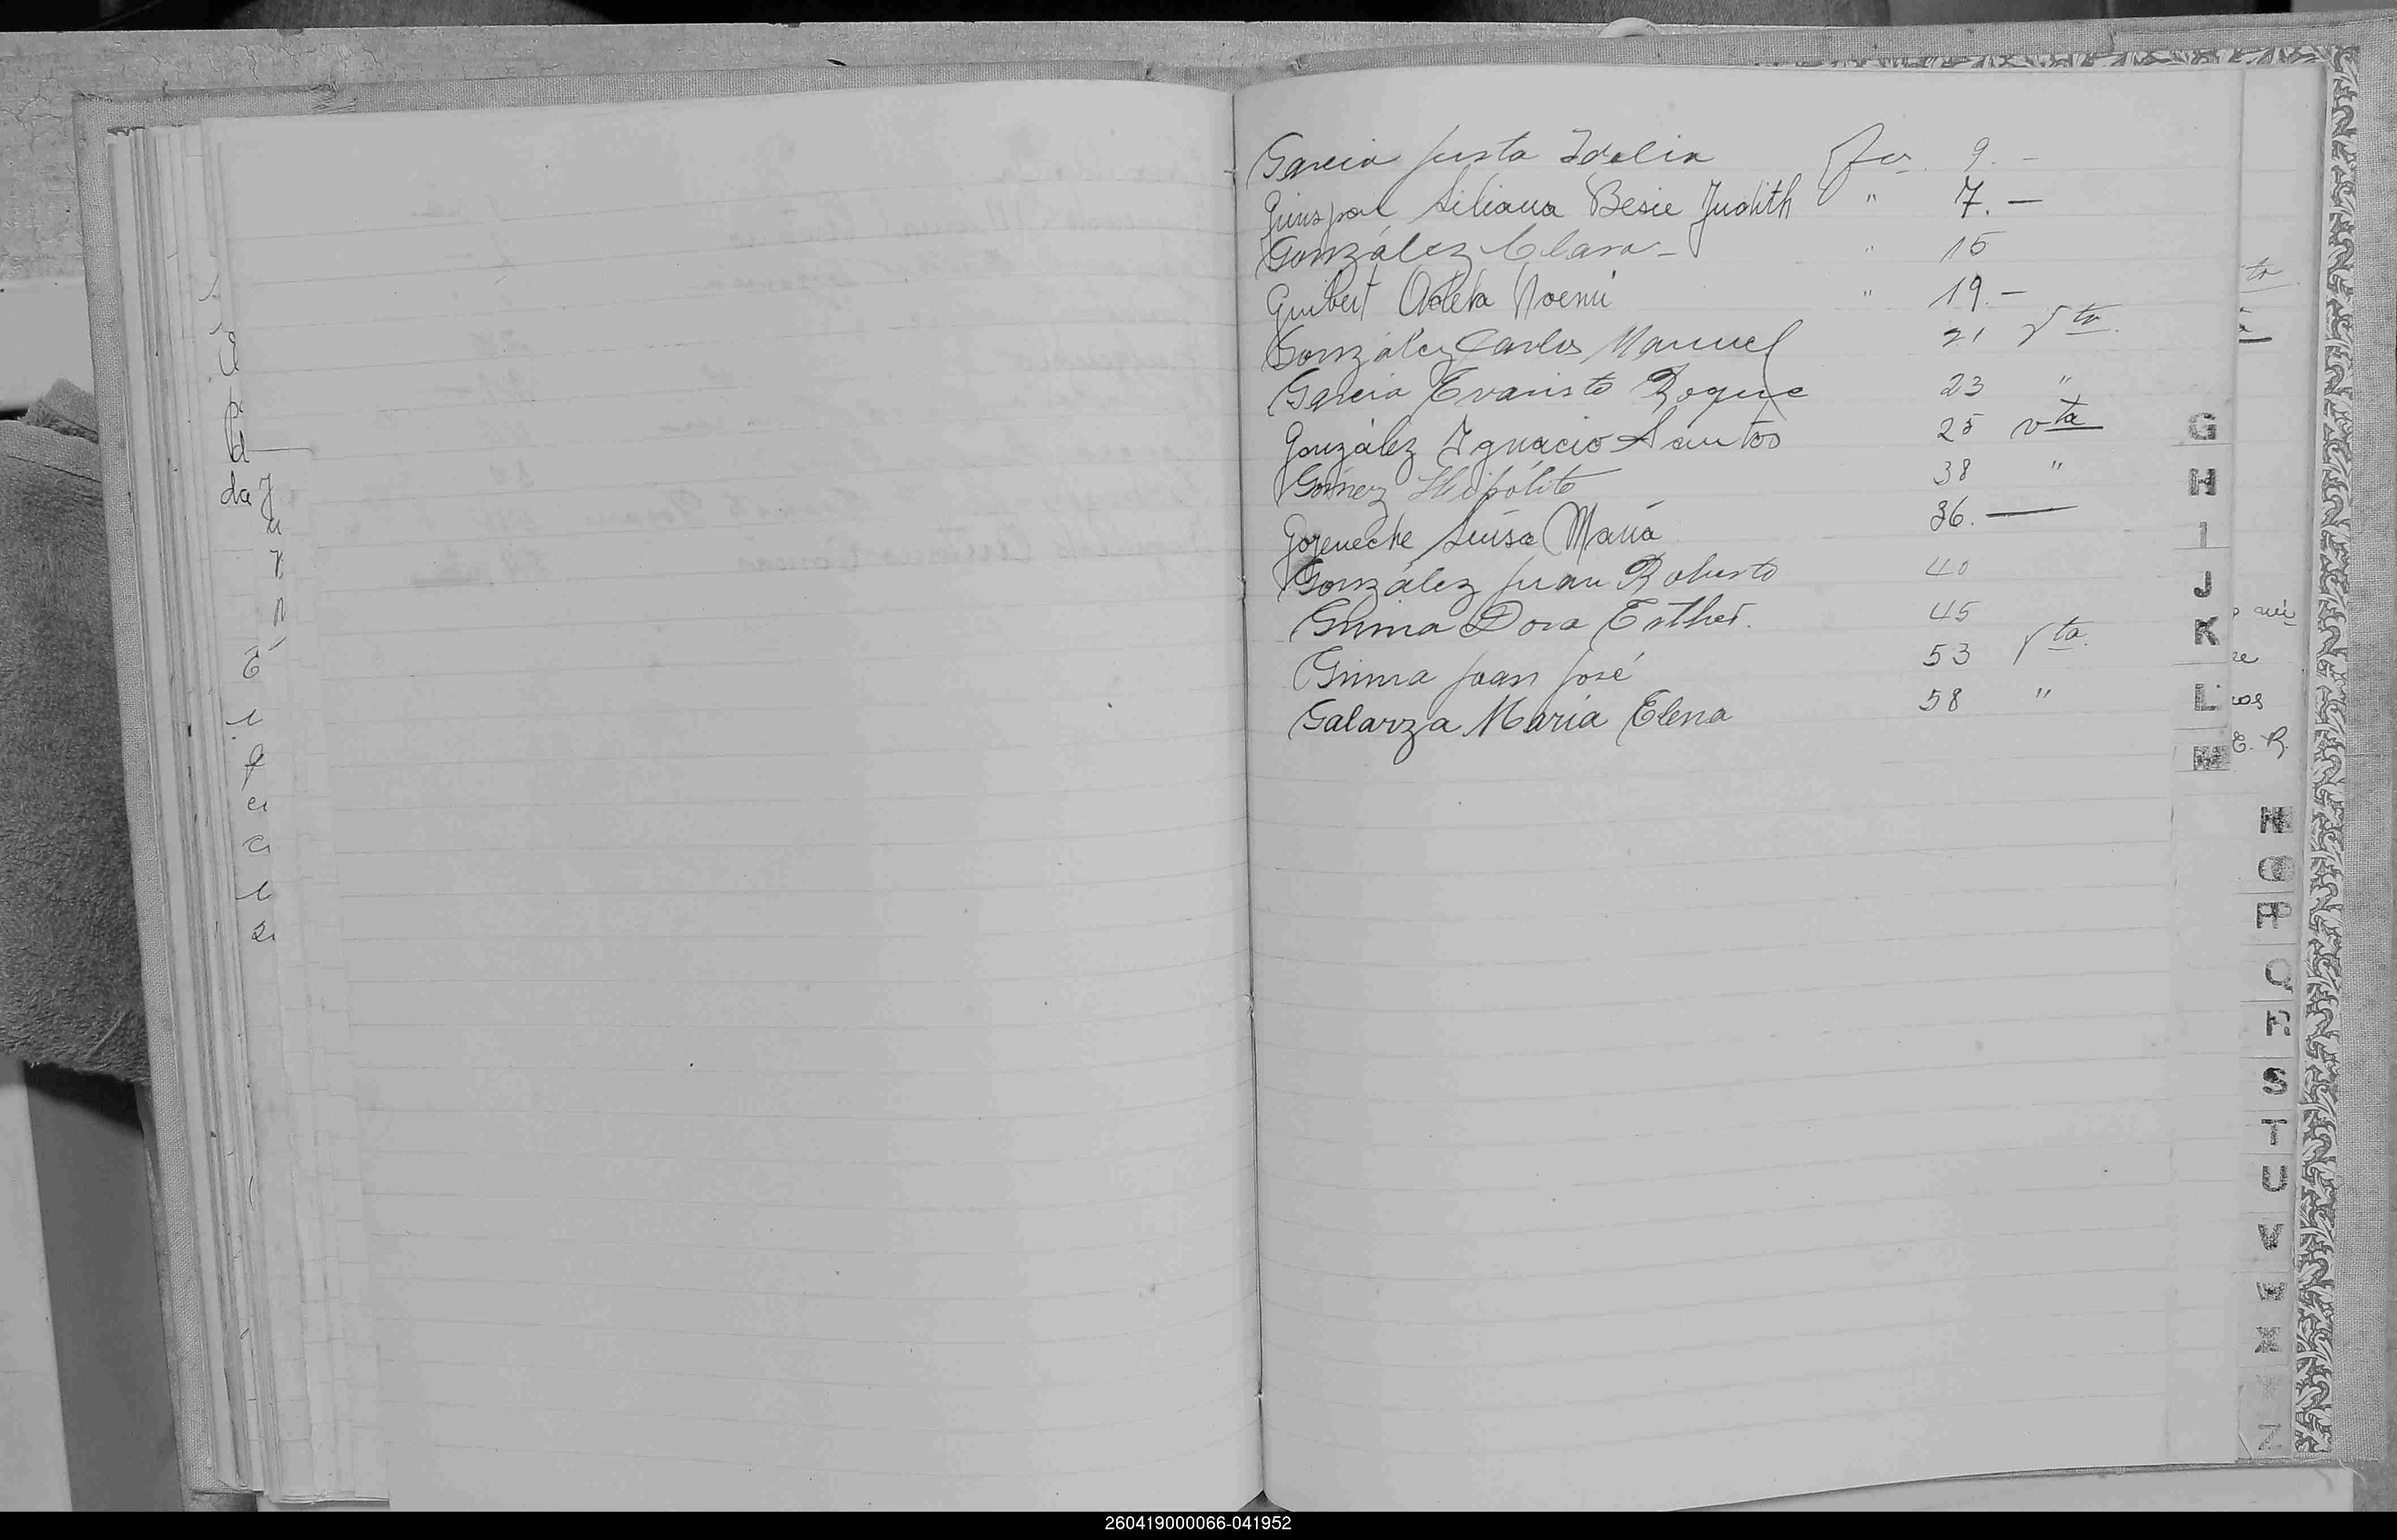 Garcia Justa Idelia fos. 9. -
Grinspan Liliana Besie Judith " 7. -
González Clara - " 15
Guibert Odela Noemi " 19. -
González Carlos Manuel 21 vta.
Garcia Evaristo Roque 23 "
González Ignacio Santos 25 vta
Gómez Hipólito 38 "
Goyeneche Luisa María 36. -
González Juan Roberto 40
Grima Dora Esther. 45
Grima Juan José 53 vta.
Galarza María Elena 58 "
G
H
I
J
K
L
M
N
O
P
Q
R
S
T
U
V
W
X
Y
Z
260419000066-041952